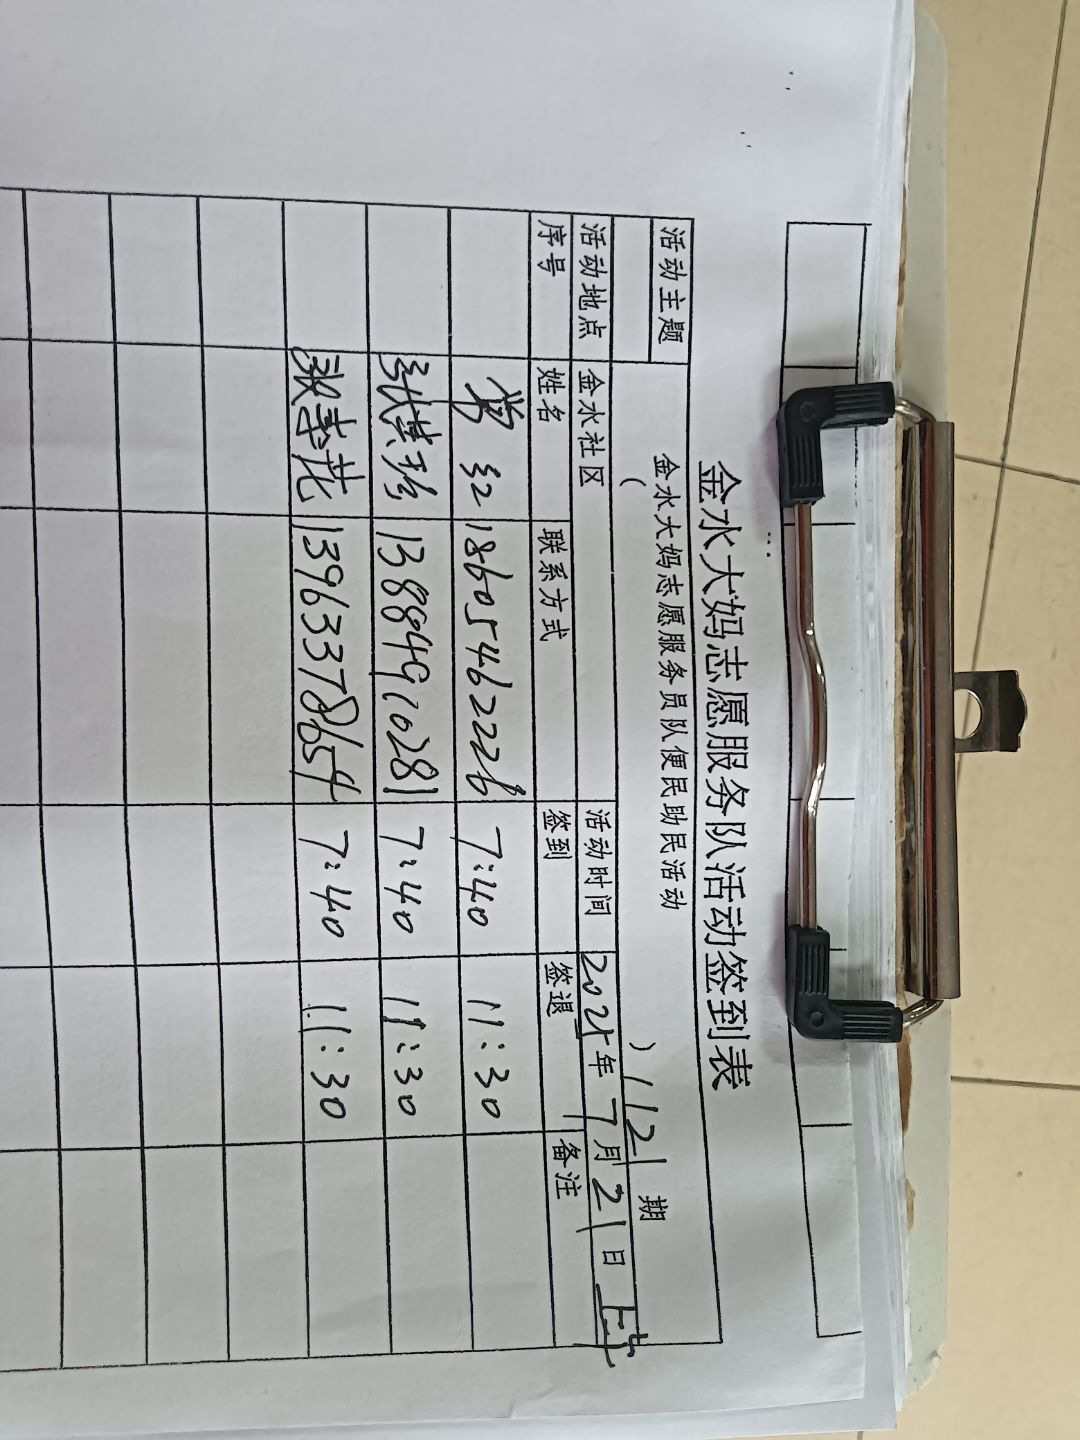 金水大妈志愿服务队活动签到表
活动主题 金水大妈志愿服务员队便民助民活动
( ) 1121 期
活动地点 金水社区 活动时间 2025年7月21日上午
序号 姓名 联系方式 签到 签退 备注
18605462226 7:40 11:30
张其珍 7:40 11:30
13963378654 7:40 11:30